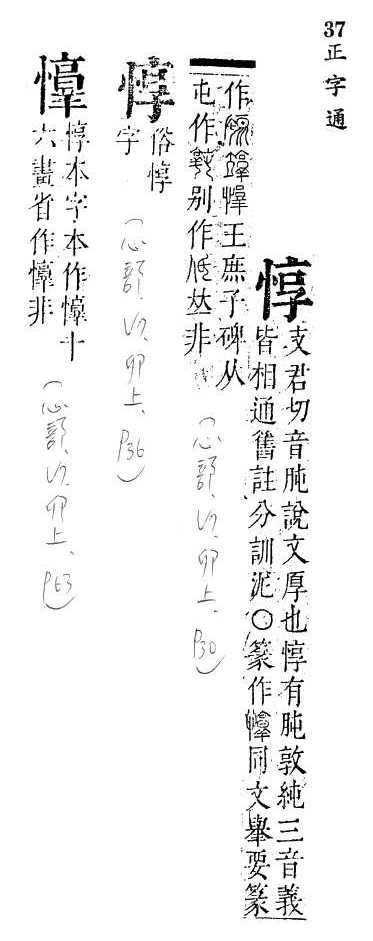 37正字通
惇
支君切音肫說文厚也惇有肫敦純三音義
皆相通舊註分訓泥○篆作𢤈同文舉要篆
作 王廡子碑从
屯作 别作 非
(心部、卯上、P30)
惇
俗惇
字
(心部、卯上、P36)
惇本字本作 十
六畫省作 非
(心部、卯上、P63)